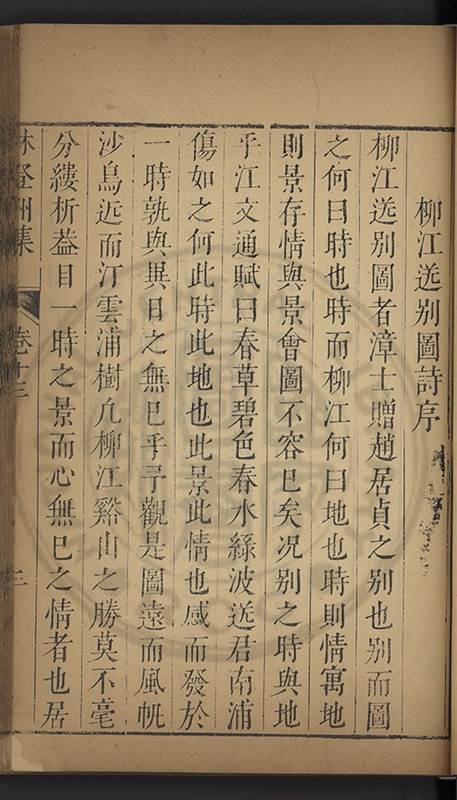 柳江送别圖詩序
柳江送别圖者漳士贈趙居貞之别也别而圖
之何曰時也時而柳江何曰地也時則情寓地
則景存情與景會圖不容已矣况别之時與地
乎江文通賦曰春草碧色春水綠波送君南浦
傷如之何此時此地也此景此情也感而發於
一時孰與異日之無已乎尋觀是圖遠而風帆
沙鳥近而汀雲浦樹凢柳江谿山之勝莫不毫
分縷析葢目一時之景而心無已之情者也居
林登州集 卷十三 三